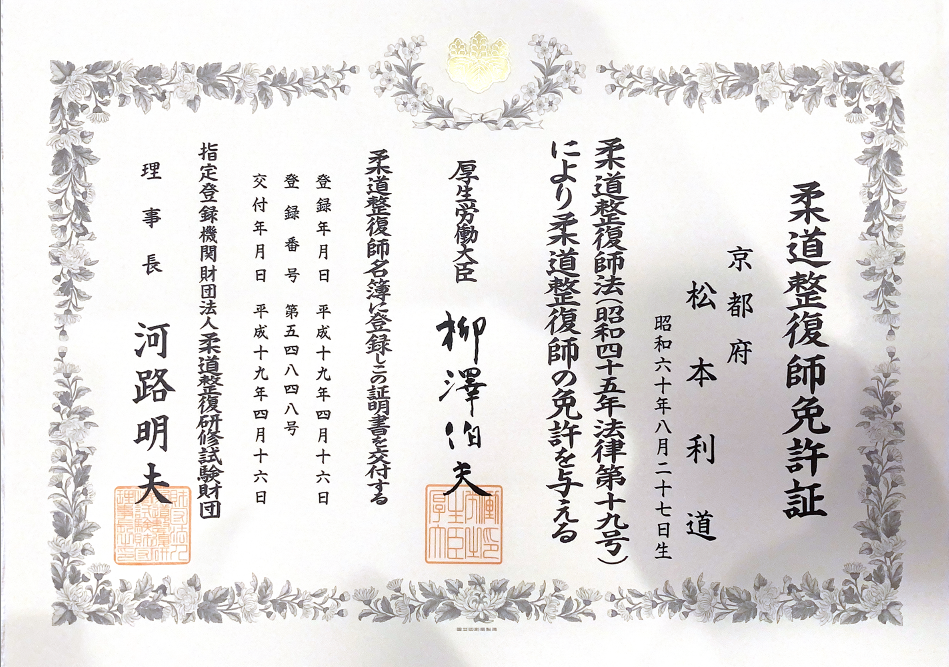 柔道整復師免許証
京都府
松本利道
昭和六十年八月二十七日生
柔道整復師法(昭和四十五年法律第十九号)
により柔道整復師の免許を与える
厚生労働大臣 柳澤伯夫
柔道整復師名簿に登録しこの証明書を交付する
登録年月日 平成十九年四月十六日
登録番号 第五四八四八号
交付年月日 平成十九年四月十六日
指定登録機関財団法人柔道整復研修試験財団
理事長 河路明夫